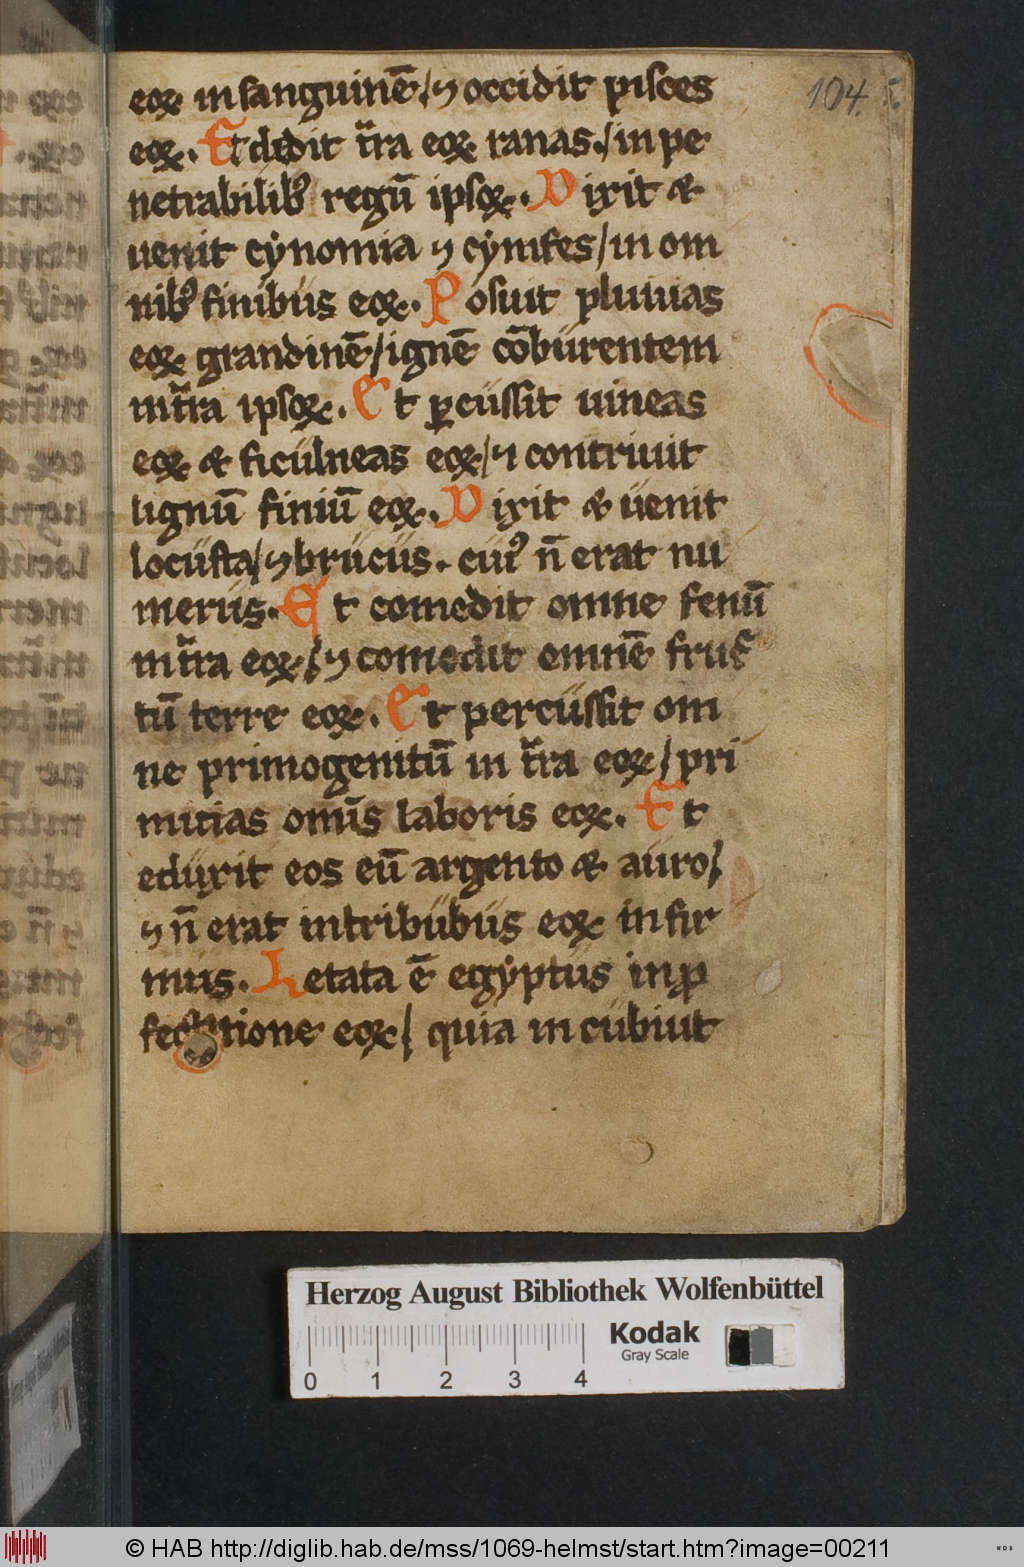 eoꝝ in sanguinē / ⁊ occidit pisces
eoꝝ. Et dedit t̄ra eoꝝ ranas. / in pe
netrabilibꝰ regū ipsoꝝ. Dixit &
uenit cẏnomia ⁊ cẏnifes / in om
nibꝰ finibus eoꝝ. Posuit pluuias
eoꝝ grandinē / ignē cōburentem
in t̄ra ipsoꝝ. Et ꝑcussit uineas
eoꝝ & ficulneas eoꝝ / ⁊ contriuit
lignū finiū eoꝝ. Dixit & uenit
locusta / ⁊ brucus. cuiꝰ n̄ erat nu
merus. Et comedit omne fenū
in t̄ra eoꝝ / ⁊ comedit omnē fruc
tū terre eoꝝ. Et percussit om
ne primogenitū in t̄ra eoꝝ / pri
mitias omīs laboris eoꝝ. Et
eduxit eos cū argento & auro /
⁊ n̄ erat in tribubus eoꝝ infir
mus. Letata ē egẏptus in ꝓ
fectione eoꝝ / quia incubuit
104.
Herzog August Bibliothek Wolfenbüttel
Kodak
Gray Scale
0 1 2 3 4
© HAB http://diglib.hab.de/mss/1069-helmst/start.htm?image=00211